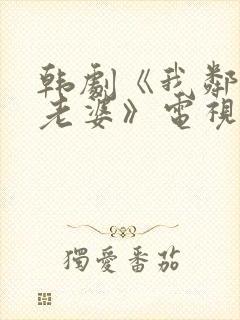 韩劇《我鄰
老婆》電視
獨愛番茄